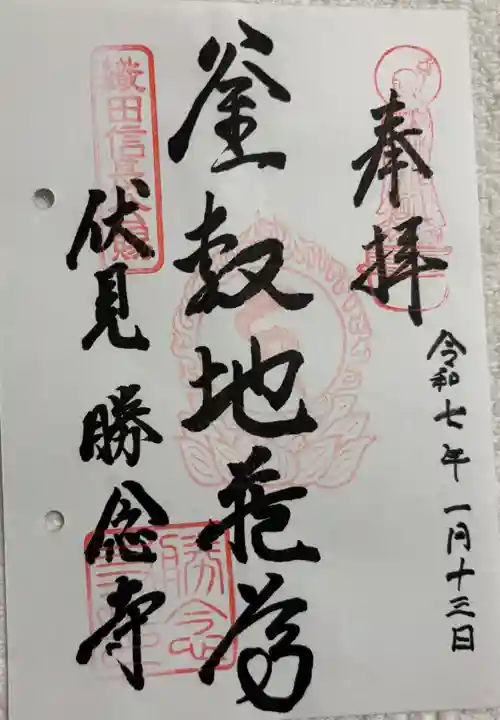 奉拝
令和七年一月十三日
釜敷地蔵尊
織田信長公賜
伏見 勝念寺
勝念